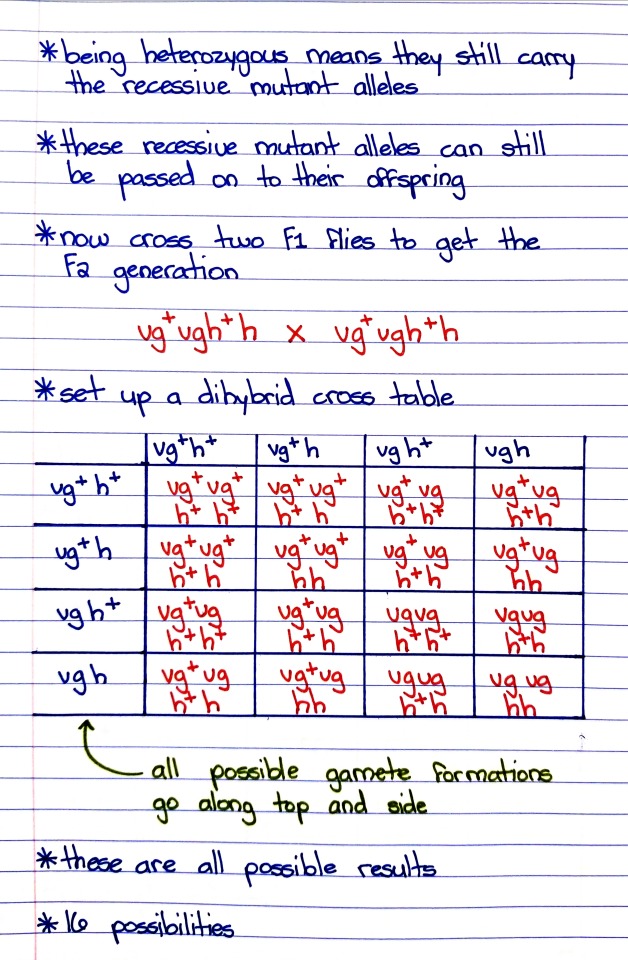 *being heterozygous means they still carry
the recessive mutant alleles
*these recessive mutant alleles can still
be passed on to their offspring
*now cross two F1 flies to get the
F2 generation
vg⁺vgh⁺h x vg⁺vgh⁺h
*set up a dihybrid cross table
vg⁺h⁺ vg⁺h vgh⁺ vgh
vg⁺h⁺ vg⁺vg⁺ vg⁺vg⁺ vg⁺vg vg⁺vg
h⁺h⁺ h⁺h h⁺h⁺ h⁺h
vg⁺h vg⁺vg⁺ vg⁺vg⁺ vg⁺vg vg⁺vg
h⁺h hh h⁺h hh
vgh⁺ vg⁺vg vg⁺vg vgvg vgvg
h⁺h⁺ h⁺h h⁺h⁺ h⁺h
vgh vg⁺vg vg⁺vg vgvg vgvg
h⁺h hh h⁺h hh
all possible gamete formations
go along top and side
*these are all possible results
*16 possibilities